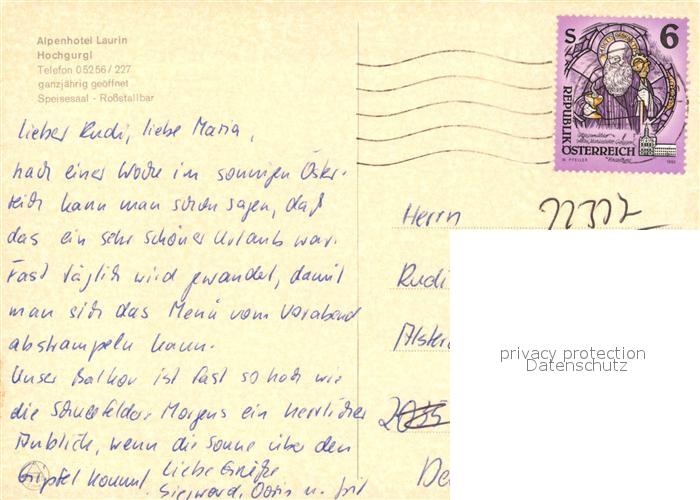 Alpenhotel Laurin
Hochgurgl
Telefon 05256/227
ganzjährig geöffnet
Speisesaal - Roßstallbar
lieber Rudi, liebe Maria,
nach einer Woche im sonnigen Öster-
reich kann man schon sagen, daß
das ein sehr schöner Urlaub war.
Fast täglich wird gewandert, damit
man sich das Menü vom Vorabend
abstrampeln kann.
Unser Balkon ist fast so hoch wie
die Schneefelder. Morgens ein herrlicher
Anblick, wenn die Sonne über den
Gipfel kommt. Liebe Grüße
Doris u.
S 6
REPUBLIK
ÖSTERREICH
Herrn
22307
Rudi
2055
privacy protection
Datenschutz